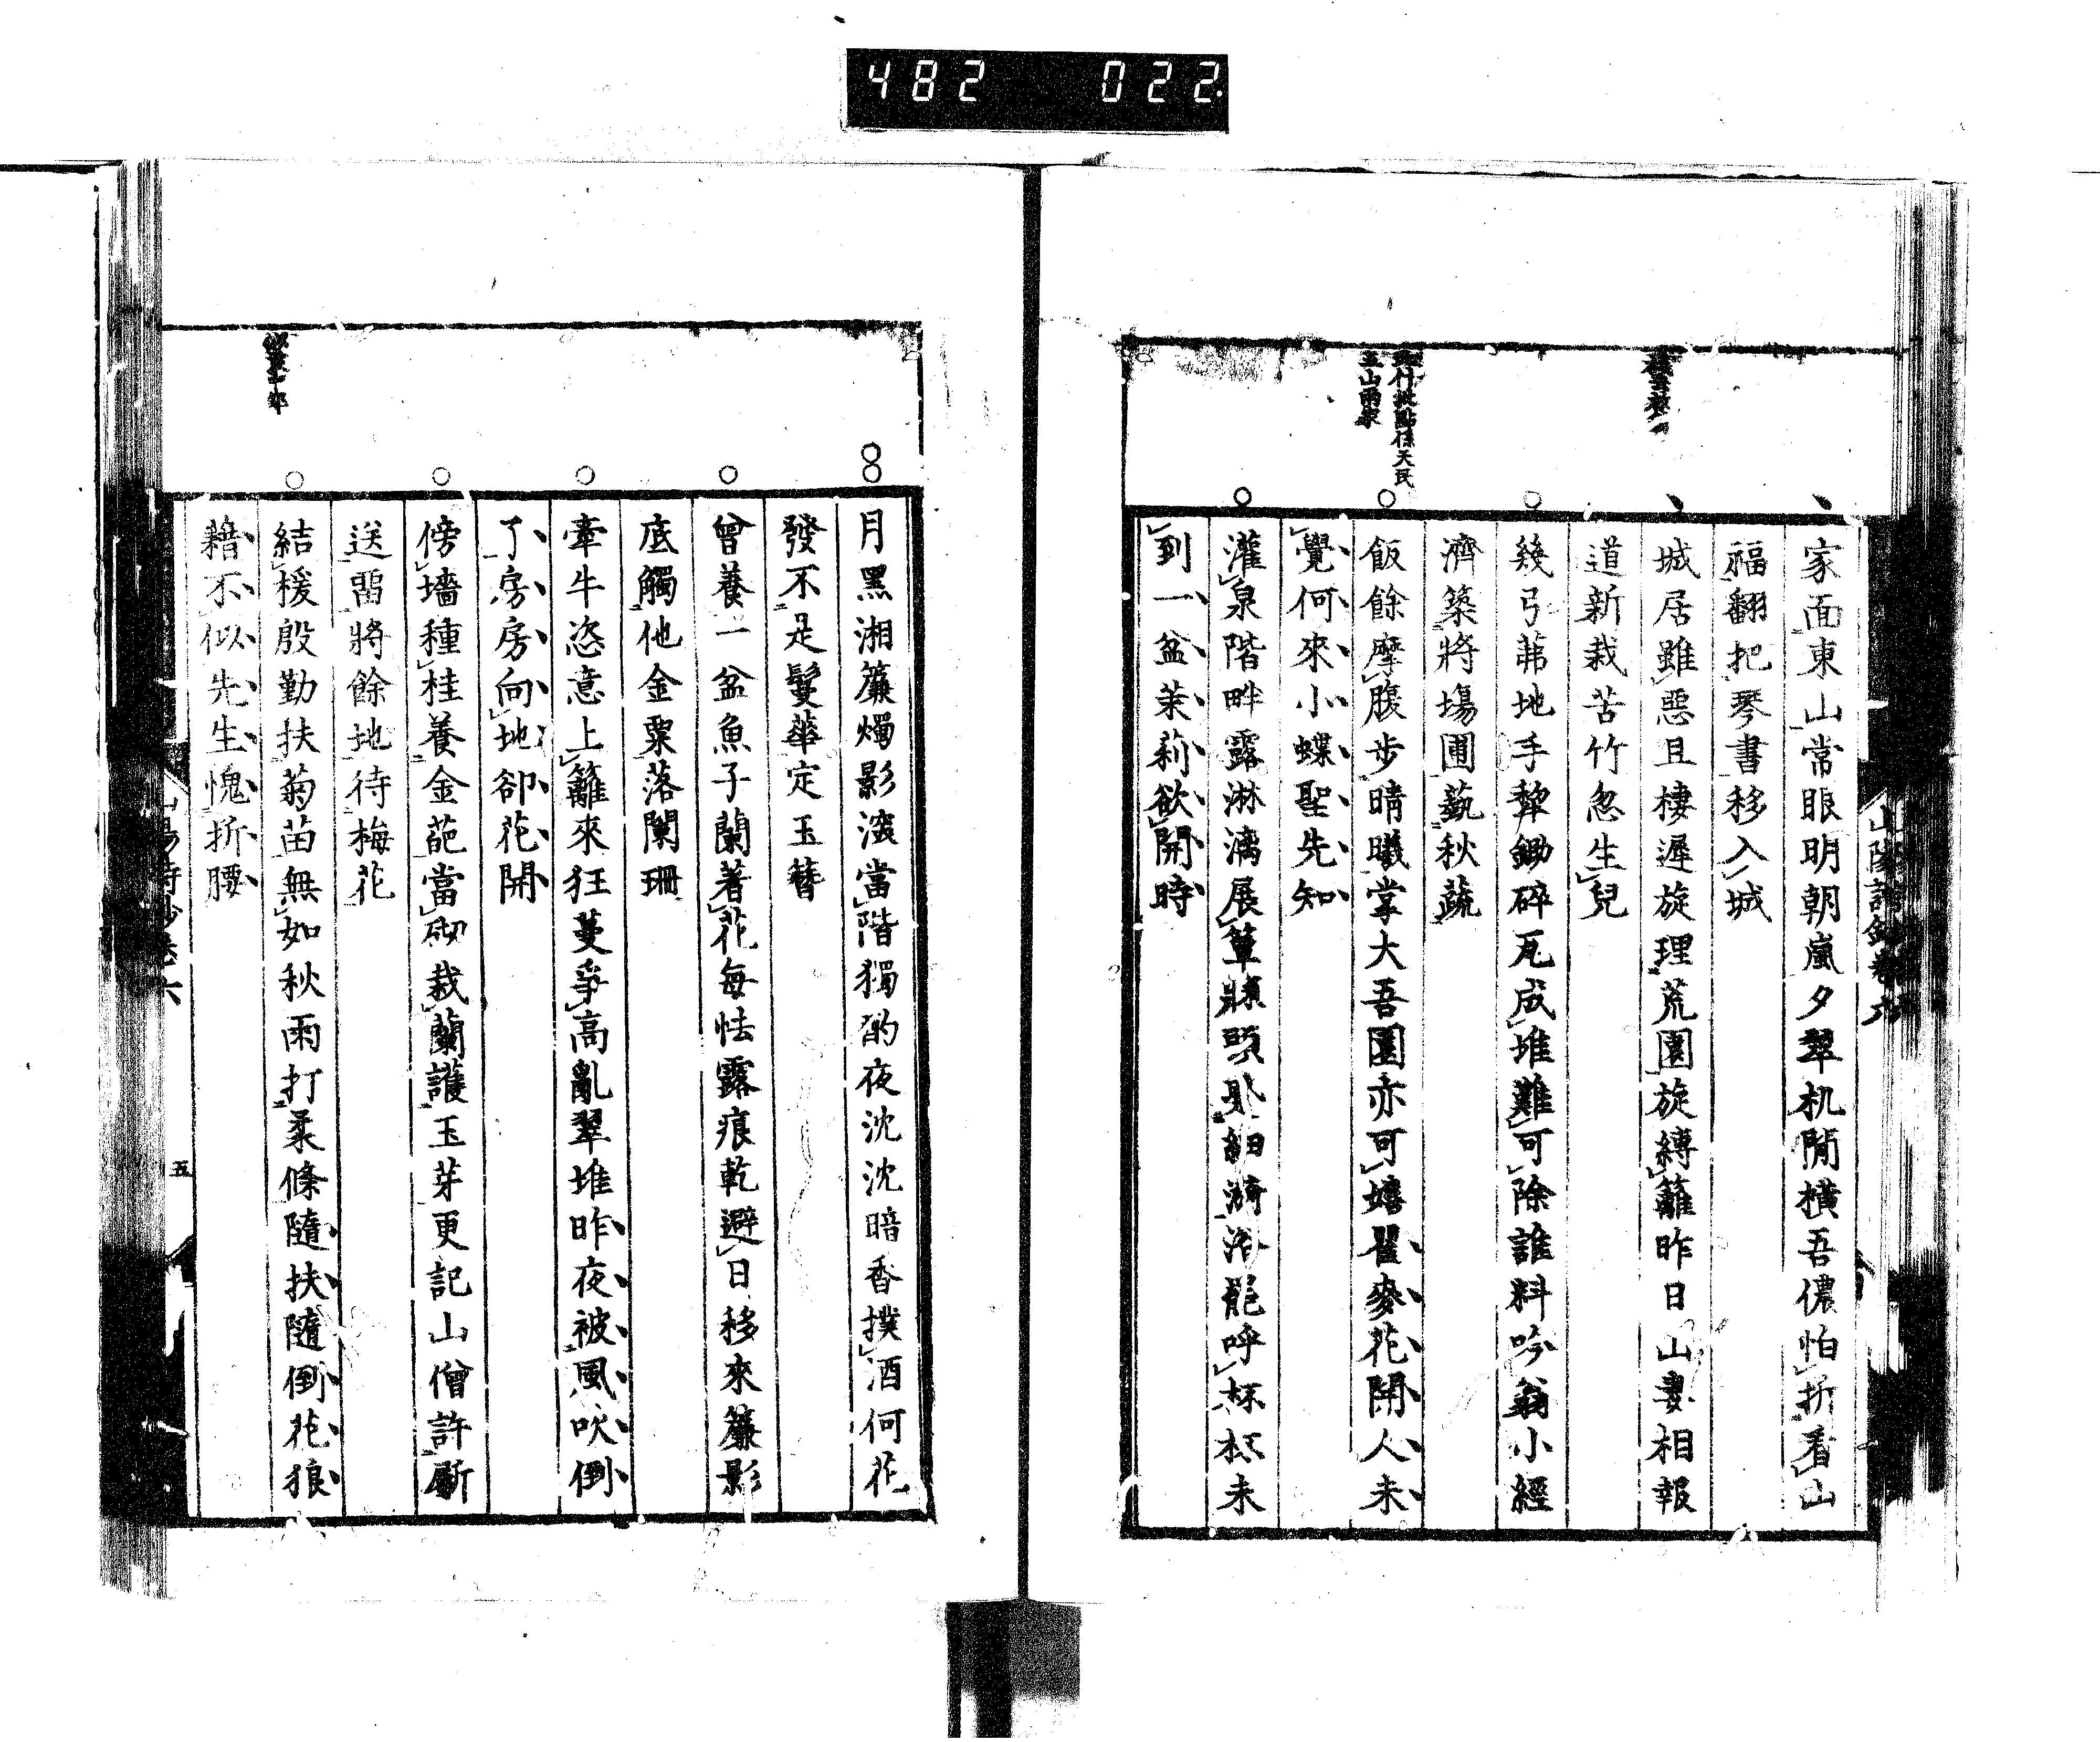 482 022
山陽詩鈔卷六
家面東山常眼明朝嵐夕翠机閒橫吾儂怕折看山
福翻把琴書移入城
城居雖惡且棲遲旋理荒園旋縛籬昨日山妻相報
道新栽苦竹忽生兒
幾弓茀地手犂鋤碎瓦成堆難可除誰料吟翁小經
濟築將場圃藝秋蔬
飯餘摩腹步晴曦掌大吾園亦可嬉瞿麥花開人未
覺何來小蝶聖先知
灌泉階畔露淋漓展簟頭細漪浴罷呼杯杯未
到一盆茉莉欲開時
月黑湘簾燭影深當階獨酌夜沈沈暗香撲酒何花
發不是鬘華定玉簪
曾養一盆魚子蘭著花每怯露痕乾避日移來簾影
底觸他金粟落闌珊
牽牛恣意上籬來狂蔓爭高亂翠堆昨夜被風吹倒
了房房向地卻花開
傍墻種桂養金葩當砌栽蘭護玉芽更記山僧許斸
送畱將餘地待梅花
結楥殷勤扶菊苗無如秋雨打柔條隨扶隨倒花狼
藉不似先生愧折腰
五